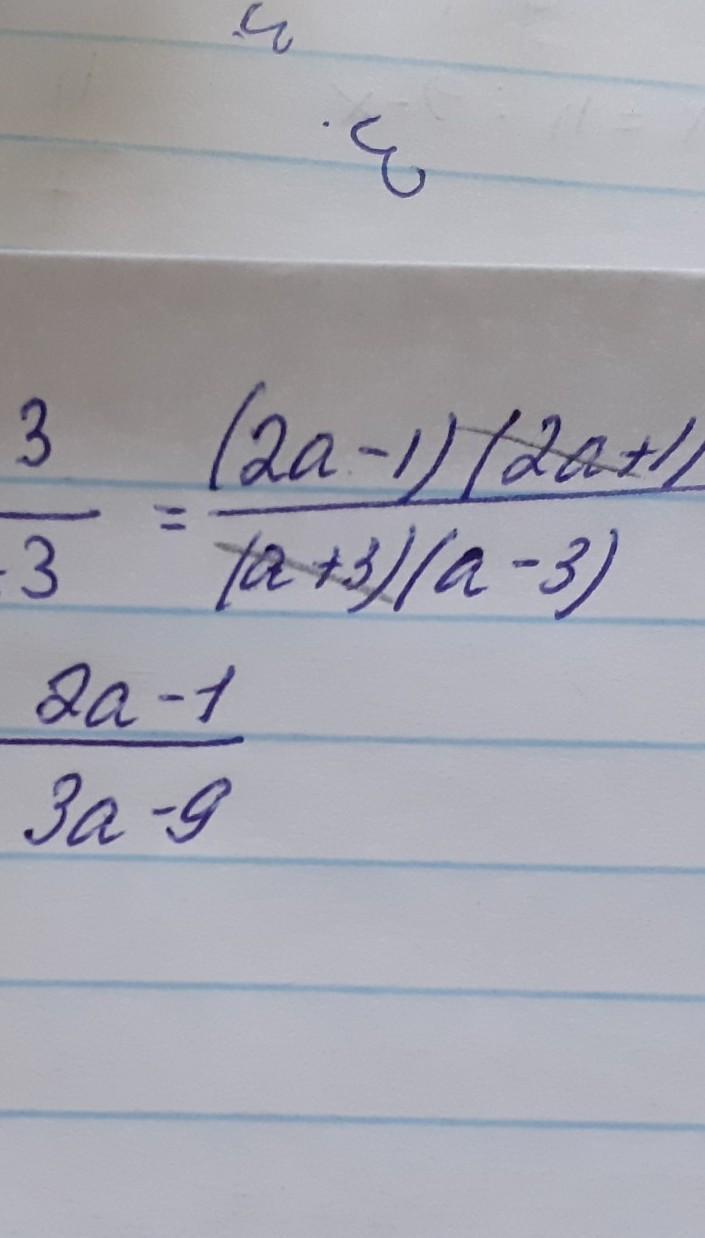 3/-3 = (2a-1)(2a+1)/(a+3)(a-3)
2a-1/3a-9